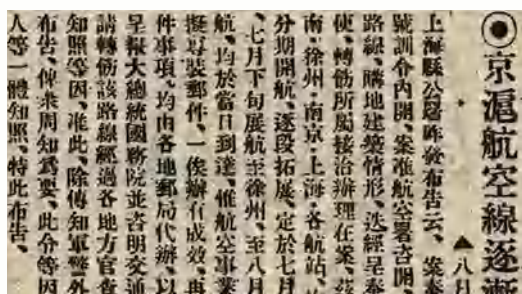 ◉京滬航空線逐漸
▲八月
上海縣公署昨發布告云、案奉
號訓令內開、案准航空署咨開、
路線、購地建築情形、迭經呈奉
使、轉飭所屬接洽辦理在案、茲
南·徐州·南京·上海·各航站、
分期開航、逐段拓展、定於七月
、七月下旬展航至徐州、至八月
航、均於當日到達、惟航空事業
擬專裝郵件、一俟辦有成效、再
件事項、均由各地郵局代辦、以
呈報大總統國務院並咨明交通
請轉飭該路線經過各地方官查
知照等因、准此、除傳知軍警外
布告、俾衆周知爲要、此令等因
人等一體知照、特此布告、